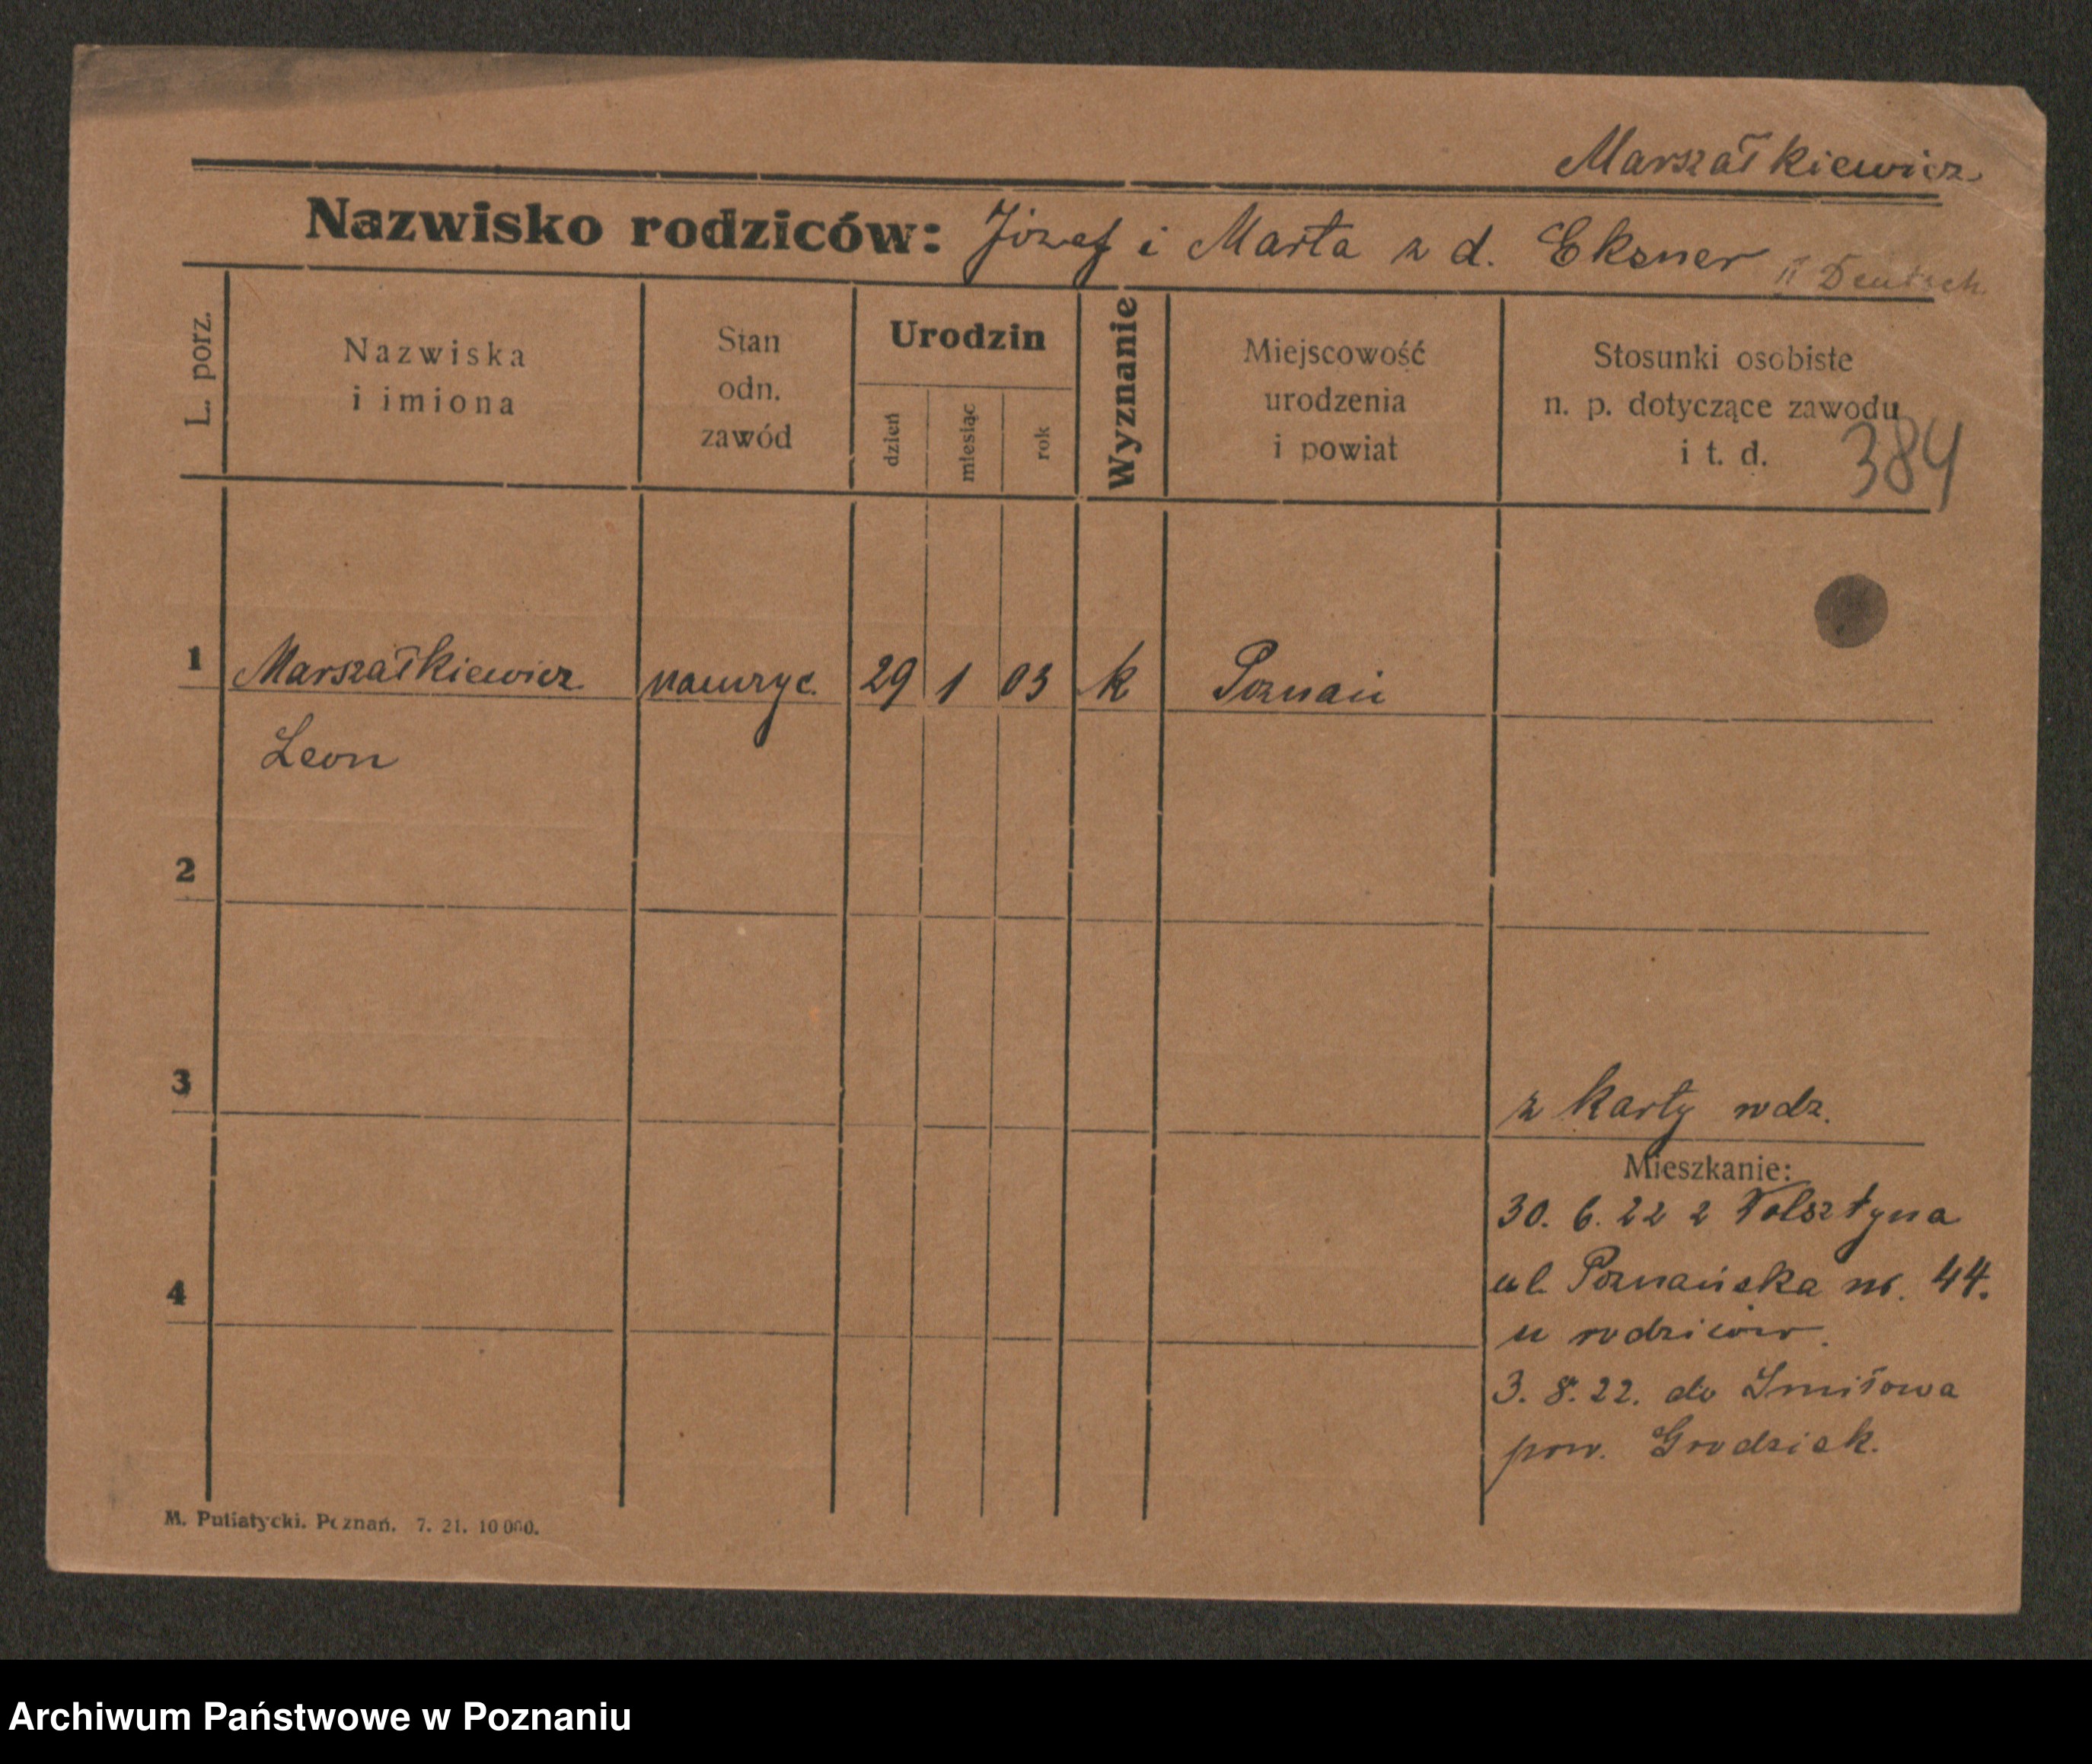 Marszałkiewicz
Nazwisko rodziców: Józef i Marta z d. Eksner II Deutsch
L. porz.
Nazwiska
i imiona
Stan
odn.
zawód
Urodzin
dzień
miesiąc
rok
Wyznanie
Miejscowość
urodzenia
i powiat
Stosunki osobiste
n. p. dotyczące zawodu
i t. d.
384
1 Marszałkiewicz nauczyc. 29 1 03 k Poznań
Leon
2
3 z karty rodz.
Mieszkanie:
30. 6. 22 z Wolsztyna
ul. Poznańska nr. 44.
4
u rodziców.
3. 8. 22. do Śmiłowa
pow. Grodzisk.
M. Putiatycki. Poznań. 7. 21. 10000.
Archiwum Państwowe w Poznaniu